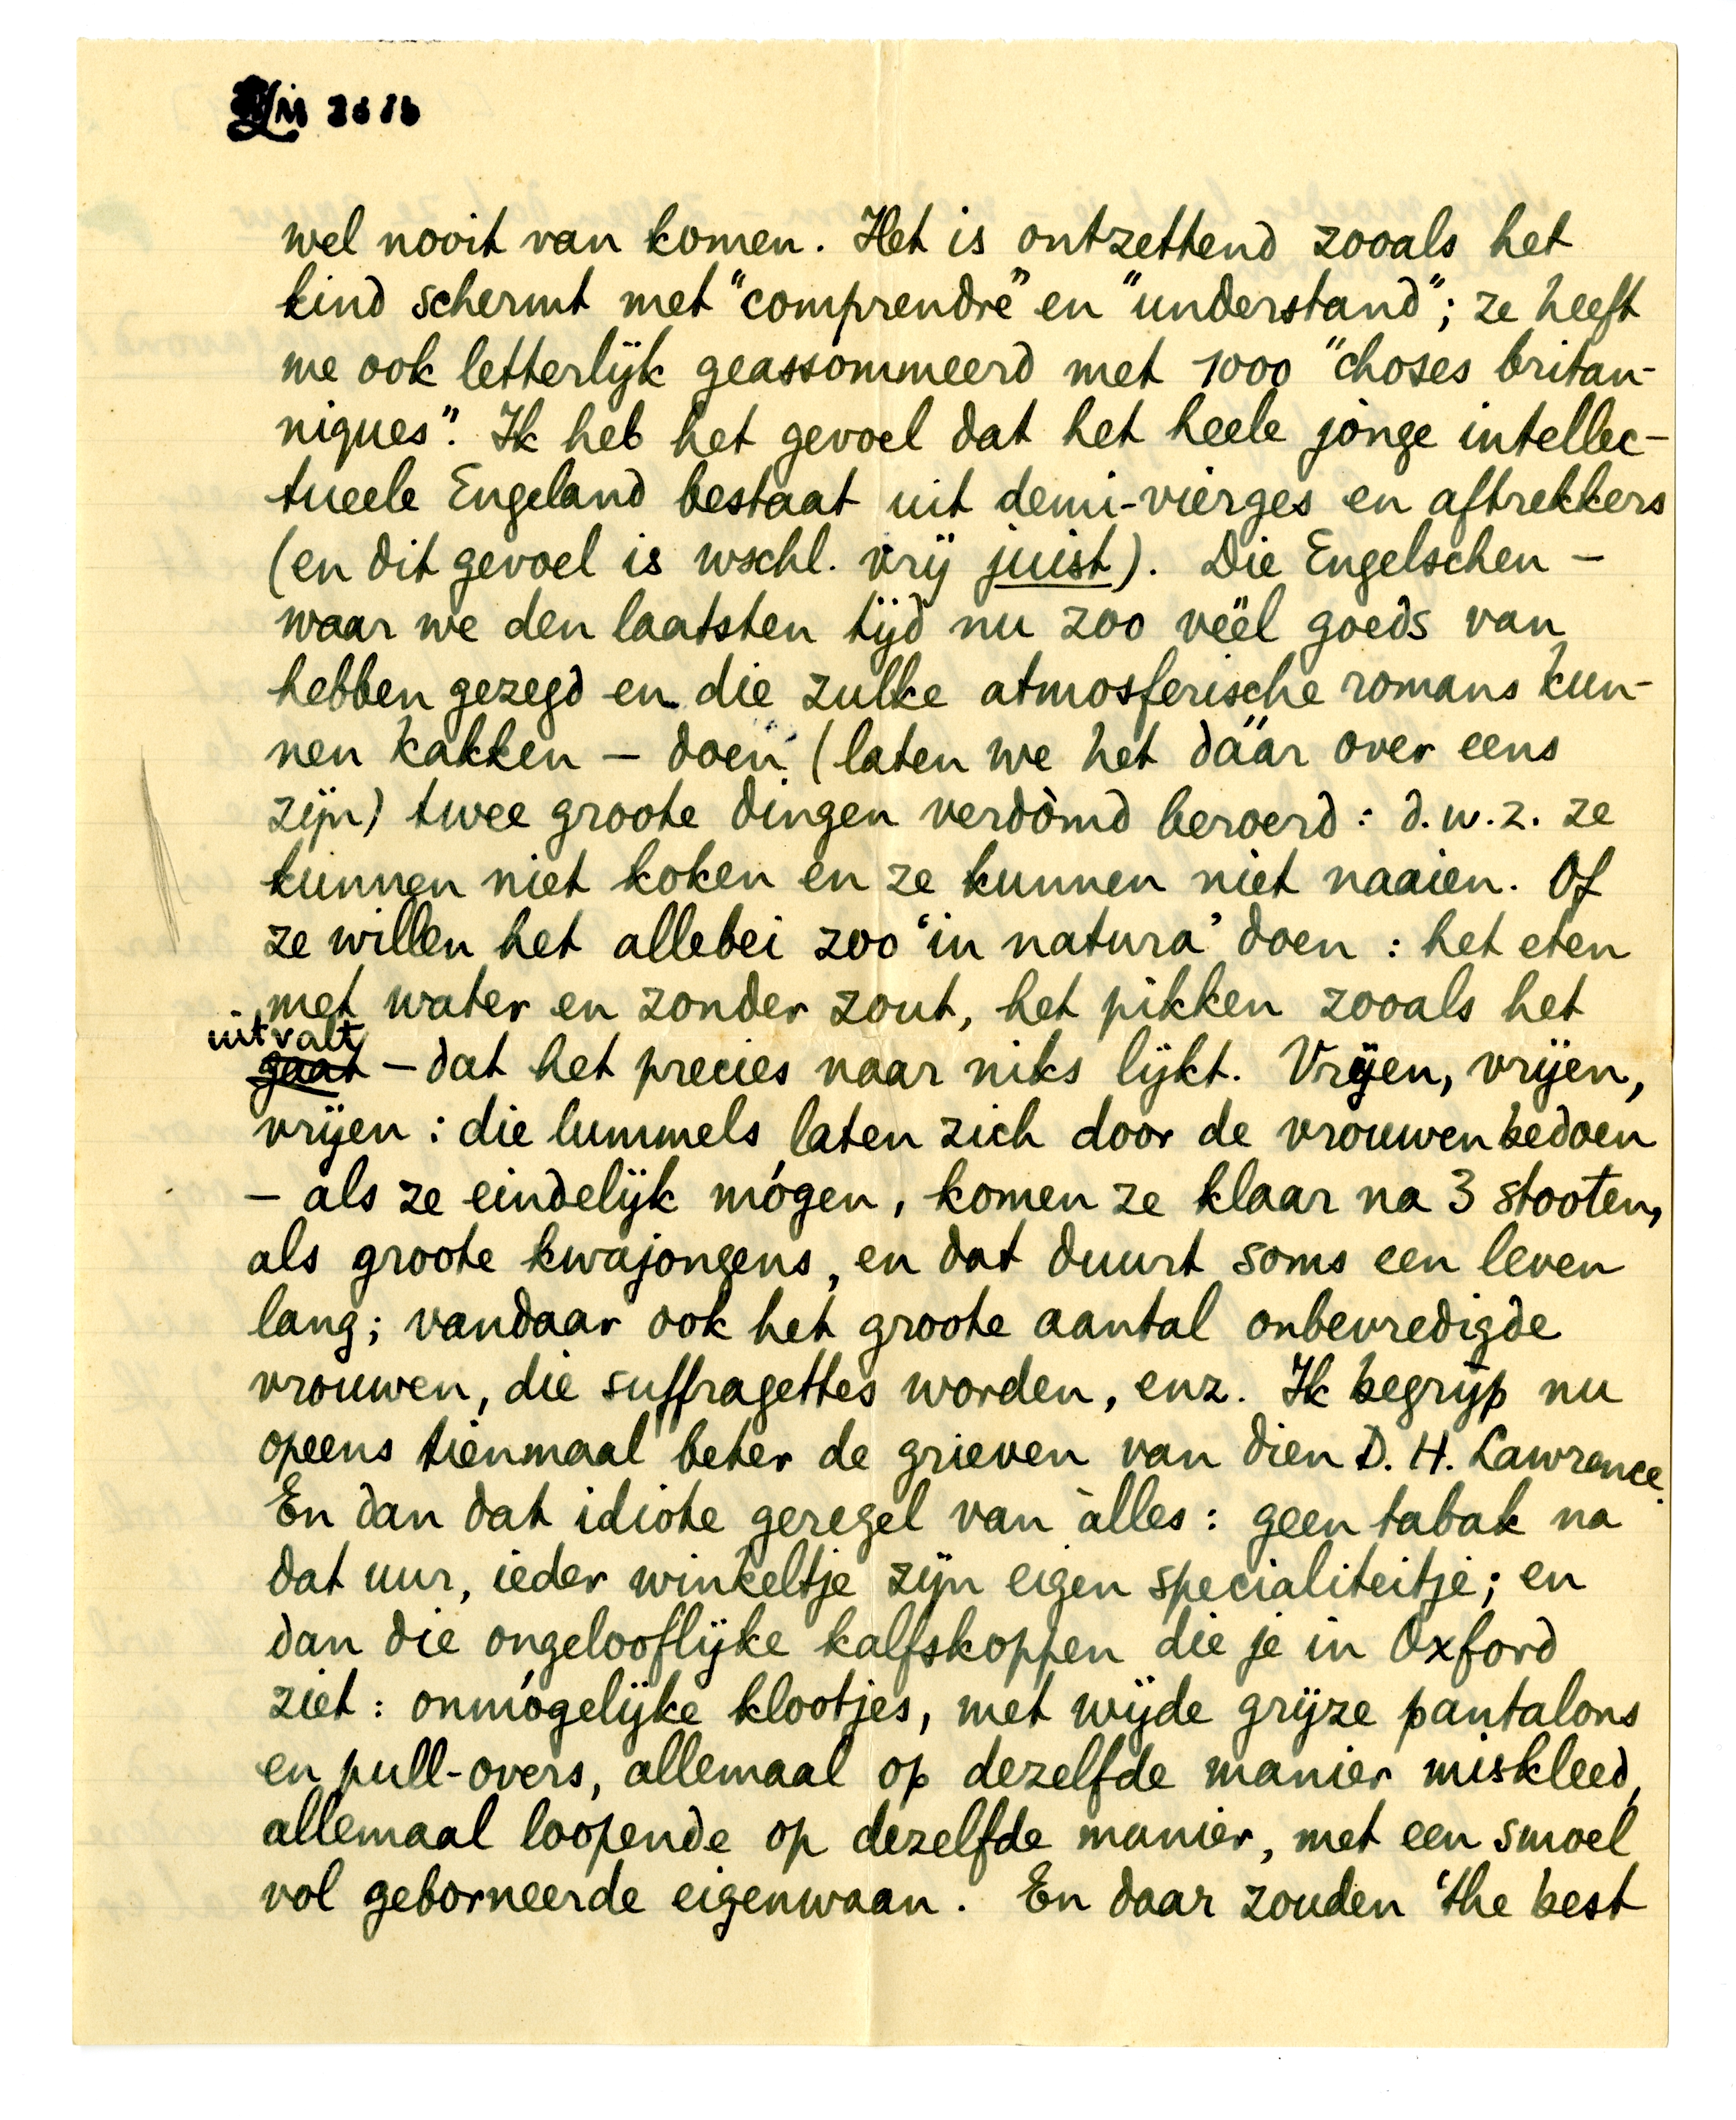 wel nooit van komen. Het is ontzettend zooals het
kind schermt met "comprendre" en "understand"; ze heeft
me ook letterlijk geassommeerd met 1000 "choses britan-
niques". Ik heb het gevoel dat het heele jonge intellec-
tueele Engeland bestaat uit demi-vierges en aftrekkers
(en dit gevoel is wschl. vrij juist). Die Engelschen –
waar we den laatsten tijd nu zoo véél goeds van
hebben gezegd en die zulke atmosferische romans kun-
nen kakken – doen (laten we het dáár over eens
zijn) twee groote dingen verdòmd beroerd: d.w.z. ze
kunnen niet koken en ze kunnen niet naaien. Of
ze willen het allebei zoo 'in natura' doen: het eten
met water en zonder zout, het pikken zooals het
uitvalt
gaat – dat het precies naar niks lijkt. Vrijen, vrijen,
vrijen: die lummels laten zich door de vrouwen bedoen
– als ze eindelijk mógen, komen ze klaar na 3 stooten,
als groote kwajongens, en dat duurt soms een leven
lang; vandaar ook het groote aantal onbevredigde
vrouwen, die suffragettes worden, enz. Ik begrijp nu
opeens tienmaal beter de grieven van dien D. H. Lawrence.
En dan dat idiote geregel van àlles: geen tabak na
dat uur, ieder winkeltje zijn eigen specialiteitje; en
dan die ongelooflijke kalfskoppen die je in Oxford
ziet: onmógelijke klootjes, met wijde grijze pantalons
en pull-overs, allemaal op dezelfde manier miskleed,
allemaal loopende op dezelfde manier, met een smoel
vol geborneerde eigenwaan. En daar zouden 'the best